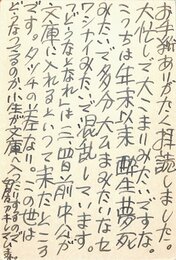 お手紙ありがたく拝読しました。
大忙しで大こまりみたいですな。
こっちは年末以来酔生夢死
みたいで多分大みたいなセ
ワシナイみたいで混乱しています。
「どうなとなれ」は三四日前中公が
文庫に入れるといって来たところ
です。タッチの差なり。この世は
どうなってるのか小生が文庫へ